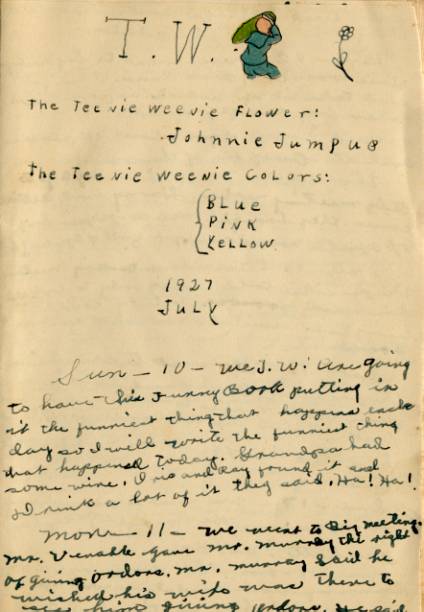 T. W.
The Teenie Weenie Flower:
Johnnie Jumpup
The Teenie Weenie Colors:
Blue
Pink
Yellow
1927
July
Sun - 10 - we T.W. are going
to have this Funny Book putting in
it the funniest thing that happens each
day so I will write the funniest thing
that happened today. Grandpa had
some wine. I no and Ray found it and
Drink a lot of it they said. Ha! Ha!
Mon - 11 - we went to Big meeting.
Mr. Venable gave Mr. Murray the right
of giving orders. Mr. Murray said he
wished his wife was there to
see him giving orders. He said